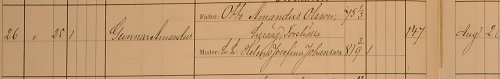 Fader: Otto Amandus Olsson, 75 1/3
26 " 25 1 Gunnar Amandus 147 Aug. 2
Moder: Helena Josefina Johansson 81 2/9 1